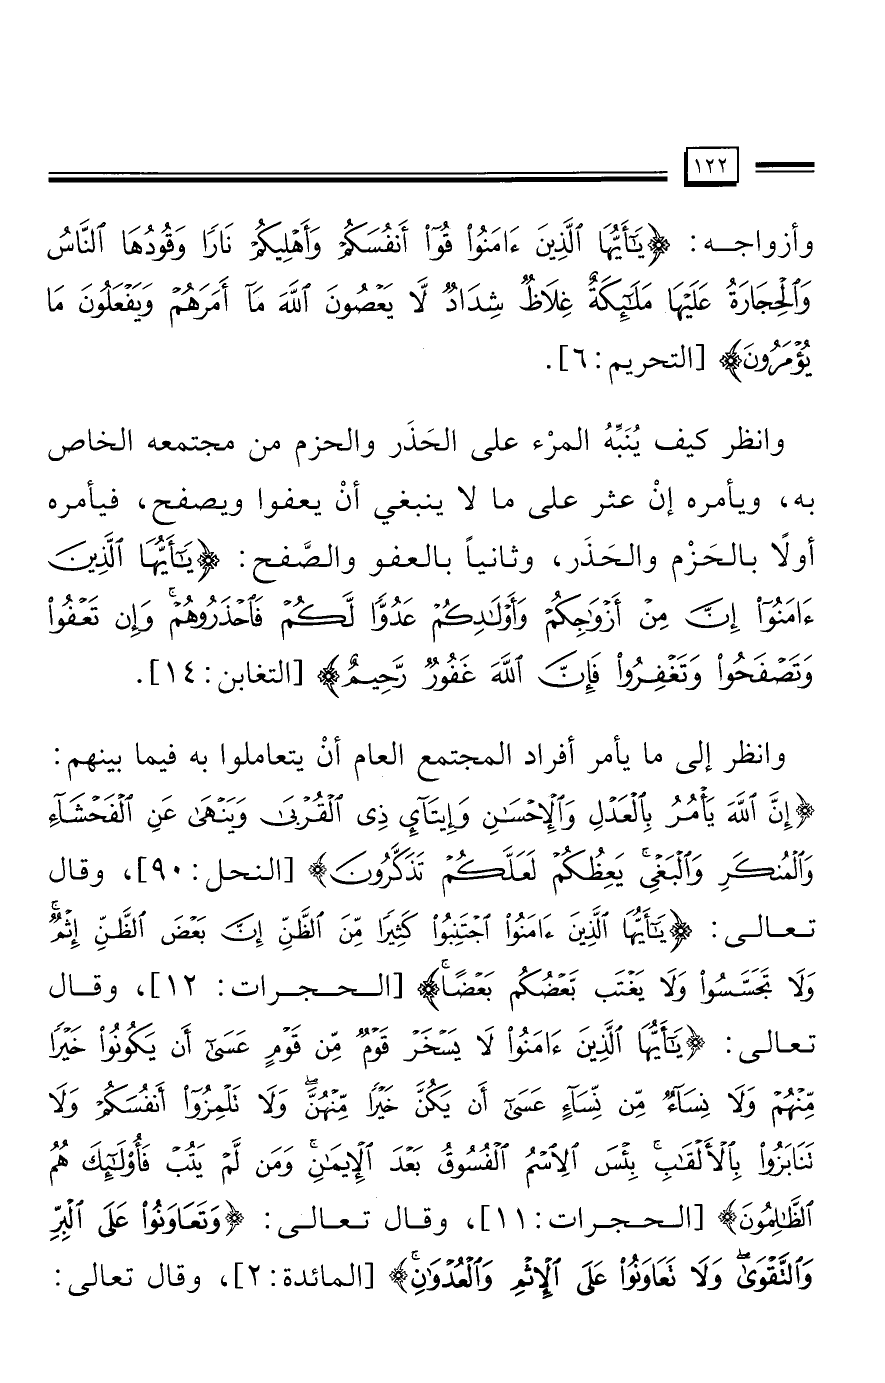 ١٢٢
وأزواجـه: ﴿يَٰٓأَيُّهَا ٱلَّذِينَ ءَامَنُوا۟ قُوٓا۟ أَنفُسَكُمْ وَأَهْلِيكُمْ نَارًا وَقُودُهَا ٱلنَّاسُ
وَٱلْحِجَارَةُ عَلَيْهَا مَلَٰٓئِكَةٌ غِلَاظٌ شِدَادٌ لَّا يَعْصُونَ ٱللَّهَ مَآ أَمَرَهُمْ وَيَفْعَلُونَ مَا
يُؤْمَرُونَ﴾ [التحريم: ٦].
وانظر كيف يُنَبِّهُ المرْء على الحَذَر والحزم من مجتمعه الخاص
به، ويأمره إنْ عثر على ما لا ينبغي أنْ يعفوا ويصفح، فيأمره
أولًا بالحَزْم والحَذَر، وثانياً بالعفو والصَّفح: ﴿يَٰٓأَيُّهَا ٱلَّذِينَ
ءَامَنُوٓا۟ إِنَّ مِنْ أَزْوَٰجِكُمْ وَأَوْلَٰدِكُمْ عَدُوًّا لَّكُمْ فَٱحْذَرُوهُمْ ۚ وَإِن تَعْفُوا۟
وَتَصْفَحُوا۟ وَتَغْفِرُوا۟ فَإِنَّ ٱللَّهَ غَفُورٌ رَّحِيمٌ﴾ [التغابن: ١٤].
وانظر إلى ما يأمر أفراد المجتمع العام أنْ يتعاملوا به فيما بينهم:
﴿إِنَّ ٱللَّهَ يَأْمُرُ بِٱلْعَدْلِ وَٱلْإِحْسَٰنِ وَإِيتَآئِ ذِى ٱلْقُرْبَىٰ وَيَنْهَىٰ عَنِ ٱلْفَحْشَآءِ
وَٱلْمُنكَرِ وَٱلْبَغْىِ ۚ يَعِظُكُمْ لَعَلَّكُمْ تَذَكَّرُونَ﴾ [النحل: ٩٠]، وقال
تعالى: ﴿يَٰٓأَيُّهَا ٱلَّذِينَ ءَامَنُوا۟ ٱجْتَنِبُوا۟ كَثِيرًا مِّنَ ٱلظَّنِّ إِنَّ بَعْضَ ٱلظَّنِّ إِثْمٌ ۖ
وَلَا تَجَسَّسُوا۟ وَلَا يَغْتَب بَّعْضُكُم بَعْضًا ۚ﴾ [الحجرات: ١٢]، وقال
تعالى: ﴿يَٰٓأَيُّهَا ٱلَّذِينَ ءَامَنُوا۟ لَا يَسْخَرْ قَوْمٌ مِّن قَوْمٍ عَسَىٰٓ أَن يَكُونُوا۟ خَيْرًا
مِّنْهُمْ وَلَا نِسَآءٌ مِّن نِّسَآءٍ عَسَىٰٓ أَن يَكُنَّ خَيْرًا مِّنْهُنَّ ۖ وَلَا تَلْمِزُوٓا۟ أَنفُسَكُمْ وَلَا
تَنَابَزُوا۟ بِٱلْأَلْقَٰبِ ۖ بِئْسَ ٱلِٱسْمُ ٱلْفُسُوقُ بَعْدَ ٱلْإِيمَٰنِ ۚ وَمَن لَّمْ يَتُبْ فَأُو۟لَٰٓئِكَ هُمُ
ٱلظَّٰلِمُونَ﴾ [الحجرات: ١١]، وقال تعالى: ﴿وَتَعَاوَنُوا۟ عَلَى ٱلْبِرِّ
وَٱلتَّقْوَىٰ ۖ وَلَا تَعَاوَنُوا۟ عَلَى ٱلْإِثْمِ وَٱلْعُدْوَٰنِ ۚ﴾ [المائدة: ٢]، وقال تعالى: